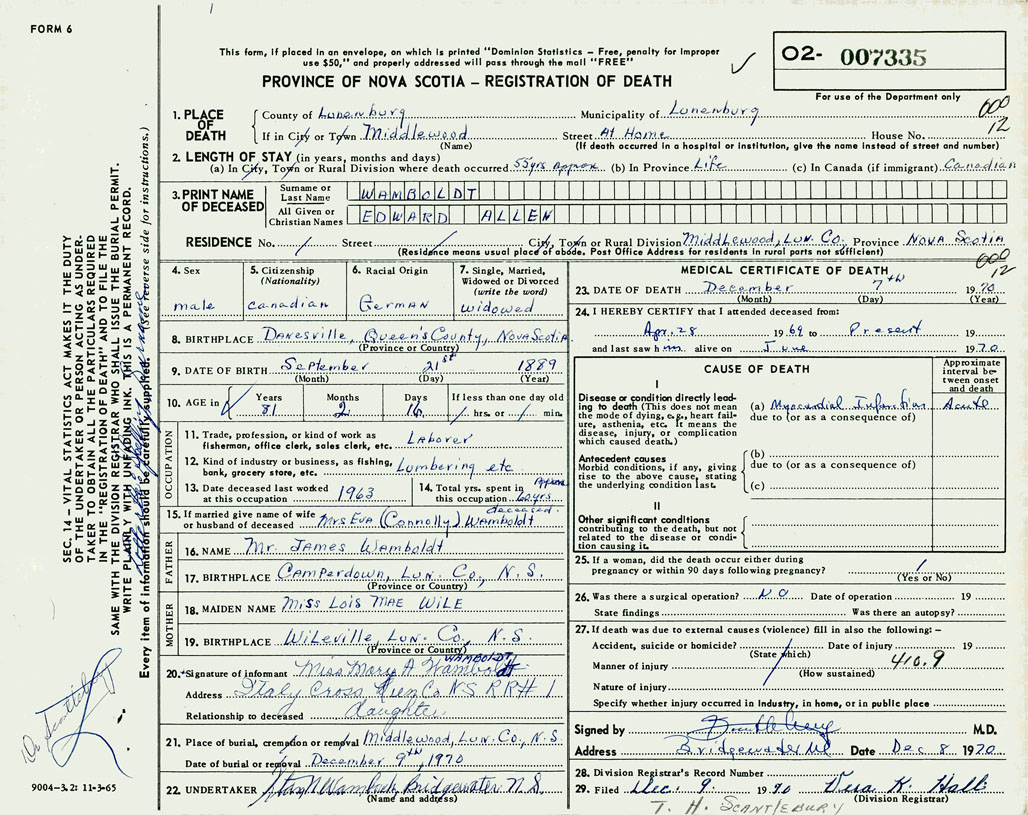 FORM 6
This form, if placed in an envelope, on which is printed "Dominion Statistics – Free, penalty for improper
use $50," and properly addressed will pass through the mail "FREE"
PROVINCE OF NOVA SCOTIA – REGISTRATION OF DEATH
02- 007335
For use of the Department only
600
12
1. PLACE OF DEATH
County of Lunenburg Municipality of Lunenburg
If in City or Town Middlewood Street At Home House No.
(Name) (If death occurred in a hospital or institution, give the name instead of street and number)
2. LENGTH OF STAY (in years, months and days)
(a) In City, Town or Rural Division where death occurred 55yrs approx (b) In Province Life (c) In Canada (if immigrant) Canadian
3. PRINT NAME OF DECEASED
Surname or Last Name WAMBOLDT
All Given or Christian Names EDWARD ALLEN
RESIDENCE No. / Street / City, Town or Rural Division Middlewood, Lun. Co. Province Nova Scotia
(Residence means usual place of abode. Post Office Address for residents in rural parts not sufficient)
600
12
4. Sex
male
5. Citizenship
(Nationality)
canadian
6. Racial Origin
German
7. Single, Married,
Widowed or Divorced
(write the word)
widowed
8. BIRTHPLACE Danesville, Queen's County, Nova Scotia
(Province or Country)
9. DATE OF BIRTH September 21st 1889
(Month) (Day) (Year)
10. AGE in Years 81 Months 2 Days 16 If less than one day old / hrs. or / min.
OCCUPATION
11. Trade, profession, or kind of work as
fisherman, office clerk, sales clerk, etc. Laborer
12. Kind of industry or business, as fishing,
bank, grocery store, etc. Lumbering etc
13. Date deceased last worked
at this occupation 1963
14. Total yrs. spent in
this occupation 60yrs. Approx
15. If married give name of wife
or husband of deceased Mrs Eva (Connolly) Wamboldt deceased
FATHER
16. NAME Mr. James Wamboldt
17. BIRTHPLACE Camperdown, Lun. Co., N.S.
(Province or Country)
MOTHER
18. MAIDEN NAME Miss Lois Mae Wile
19. BIRTHPLACE Wileville, Lun. Co., N.S.
(Province or Country)
WAMBOLDT
20. Signature of informant Miss Mary A Wamboldt
Address Italy Cross Lun Co NS RR# 1
Relationship to deceased daughter
21. Place of burial, cremation or removal Middlewood, Lun. Co., N.S.
Date of burial or removal December 9th, 1970
22. UNDERTAKER Bridgewater N.S.
(Name and address)
MEDICAL CERTIFICATE OF DEATH
23. DATE OF DEATH December 7th 1970
(Month) (Day) (Year)
24. I HEREBY CERTIFY that I attended deceased from:
Apr. 28 1969 to Present 19
and last saw him alive on June 1970
CAUSE OF DEATH
Approximate
interval be-
tween onset
and death
I
Disease or condition directly lead-
ing to death (This does not mean
the mode of dying, e.g., heart fail-
ure, asthenia, etc. It means the
disease, injury, or complication
which caused death.)
(a) Myocardial Infarction Acute
due to (or as a consequence of)
Antecedent causes
Morbid conditions, if any, giving
rise to the above cause, stating
the underlying condition last.
(b)
due to (or as a consequence of)
(c)
II
Other significant conditions
contributing to the death, but not
related to the disease or condi-
tion causing it.
25. If a woman, did the death occur either during
pregnancy or within 90 days following pregnancy? /
(Yes or No)
26. Was there a surgical operation? NO Date of operation 19
State findings Was there an autopsy?
27. If death was due to external causes (violence) fill in also the following: –
Accident, suicide or homicide? Date of injury 19
(State which)
Manner of injury 410.9
(How sustained)
Nature of injury
Specify whether injury occurred in Industry, in home, or in public place
Signed by M.D.
Address Bridgewater Date Dec 8 1970
28. Division Registrar's Record Number
29. Filed Dec. 9 1970 Vera K. Hall
(Division Registrar)
T. H. SCANTLEBURY
SEC. 14 – VITAL STATISTICS ACT MAKES IT THE DUTY
OF THE UNDERTAKER OR PERSON ACTING AS UNDER-
TAKER TO OBTAIN ALL THE PARTICULARS REQUIRED
IN THE "REGISTRATION OF DEATH" AND TO FILE THE
SAME WITH THE DIVISION REGISTRAR WHO SHALL ISSUE THE BURIAL PERMIT.
WRITE PLAINLY WITH UNFADING INK. THIS IS A PERMANENT RECORD.
Every item of information should be carefully supplied. (See reverse side for instructions.)
Dr Scantlebury
9004–3.2: 11-3-65